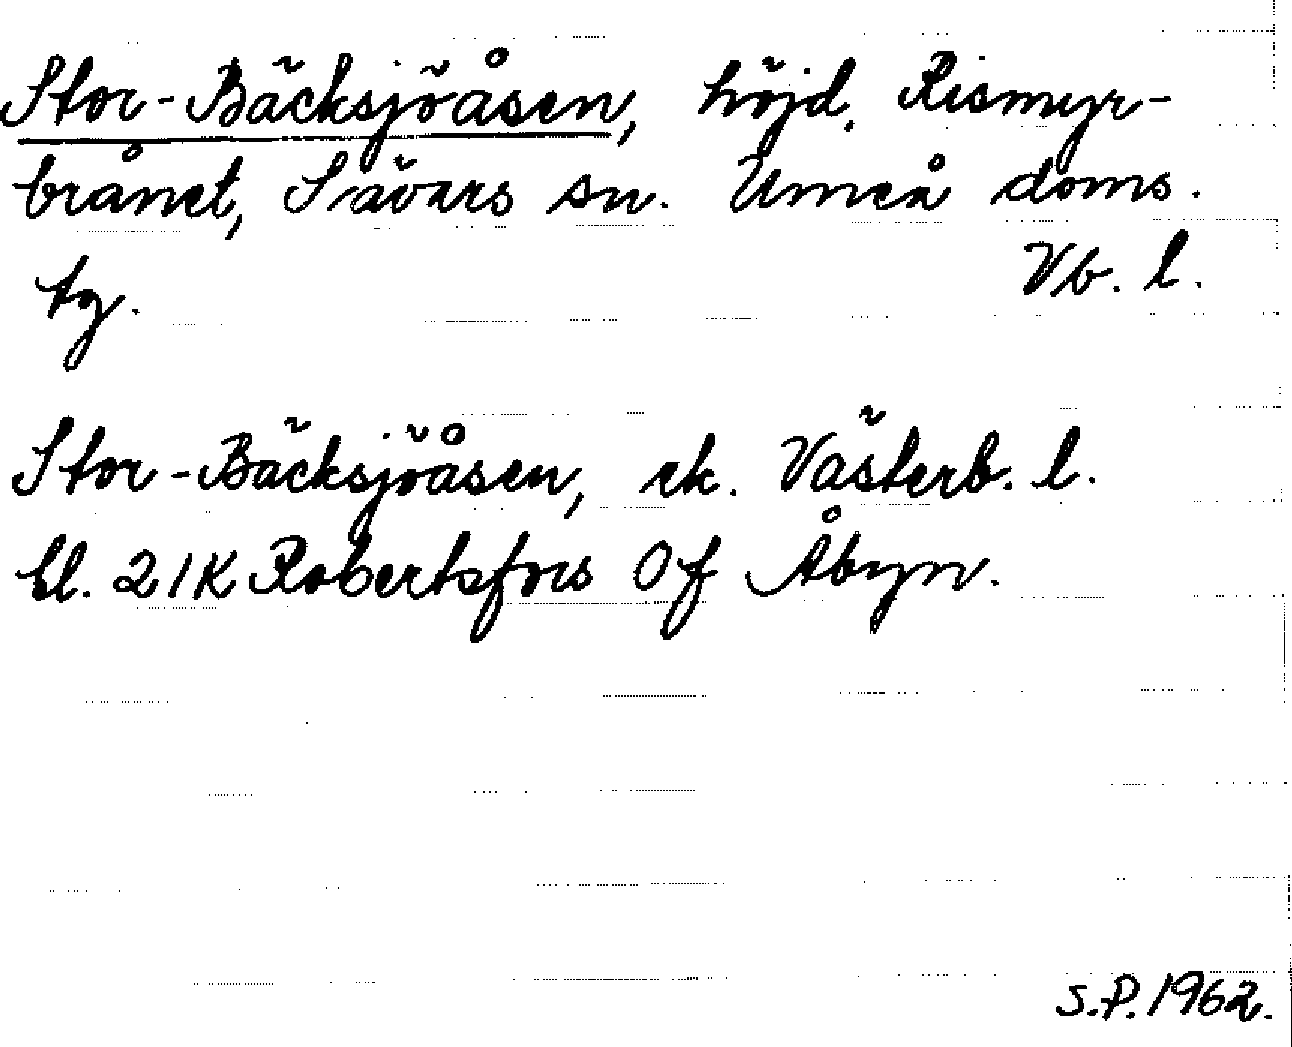 Stor-Bäcksjöåsen, höjd, Rismyr-
brånet, Sävars sn. Umeå doms.
tg. Vb. l.
Stor-Bäcksjöåsen, ek. Västerb. l.
bl. 21K Robertsfors Of Åbyn.
S.P. 1962.